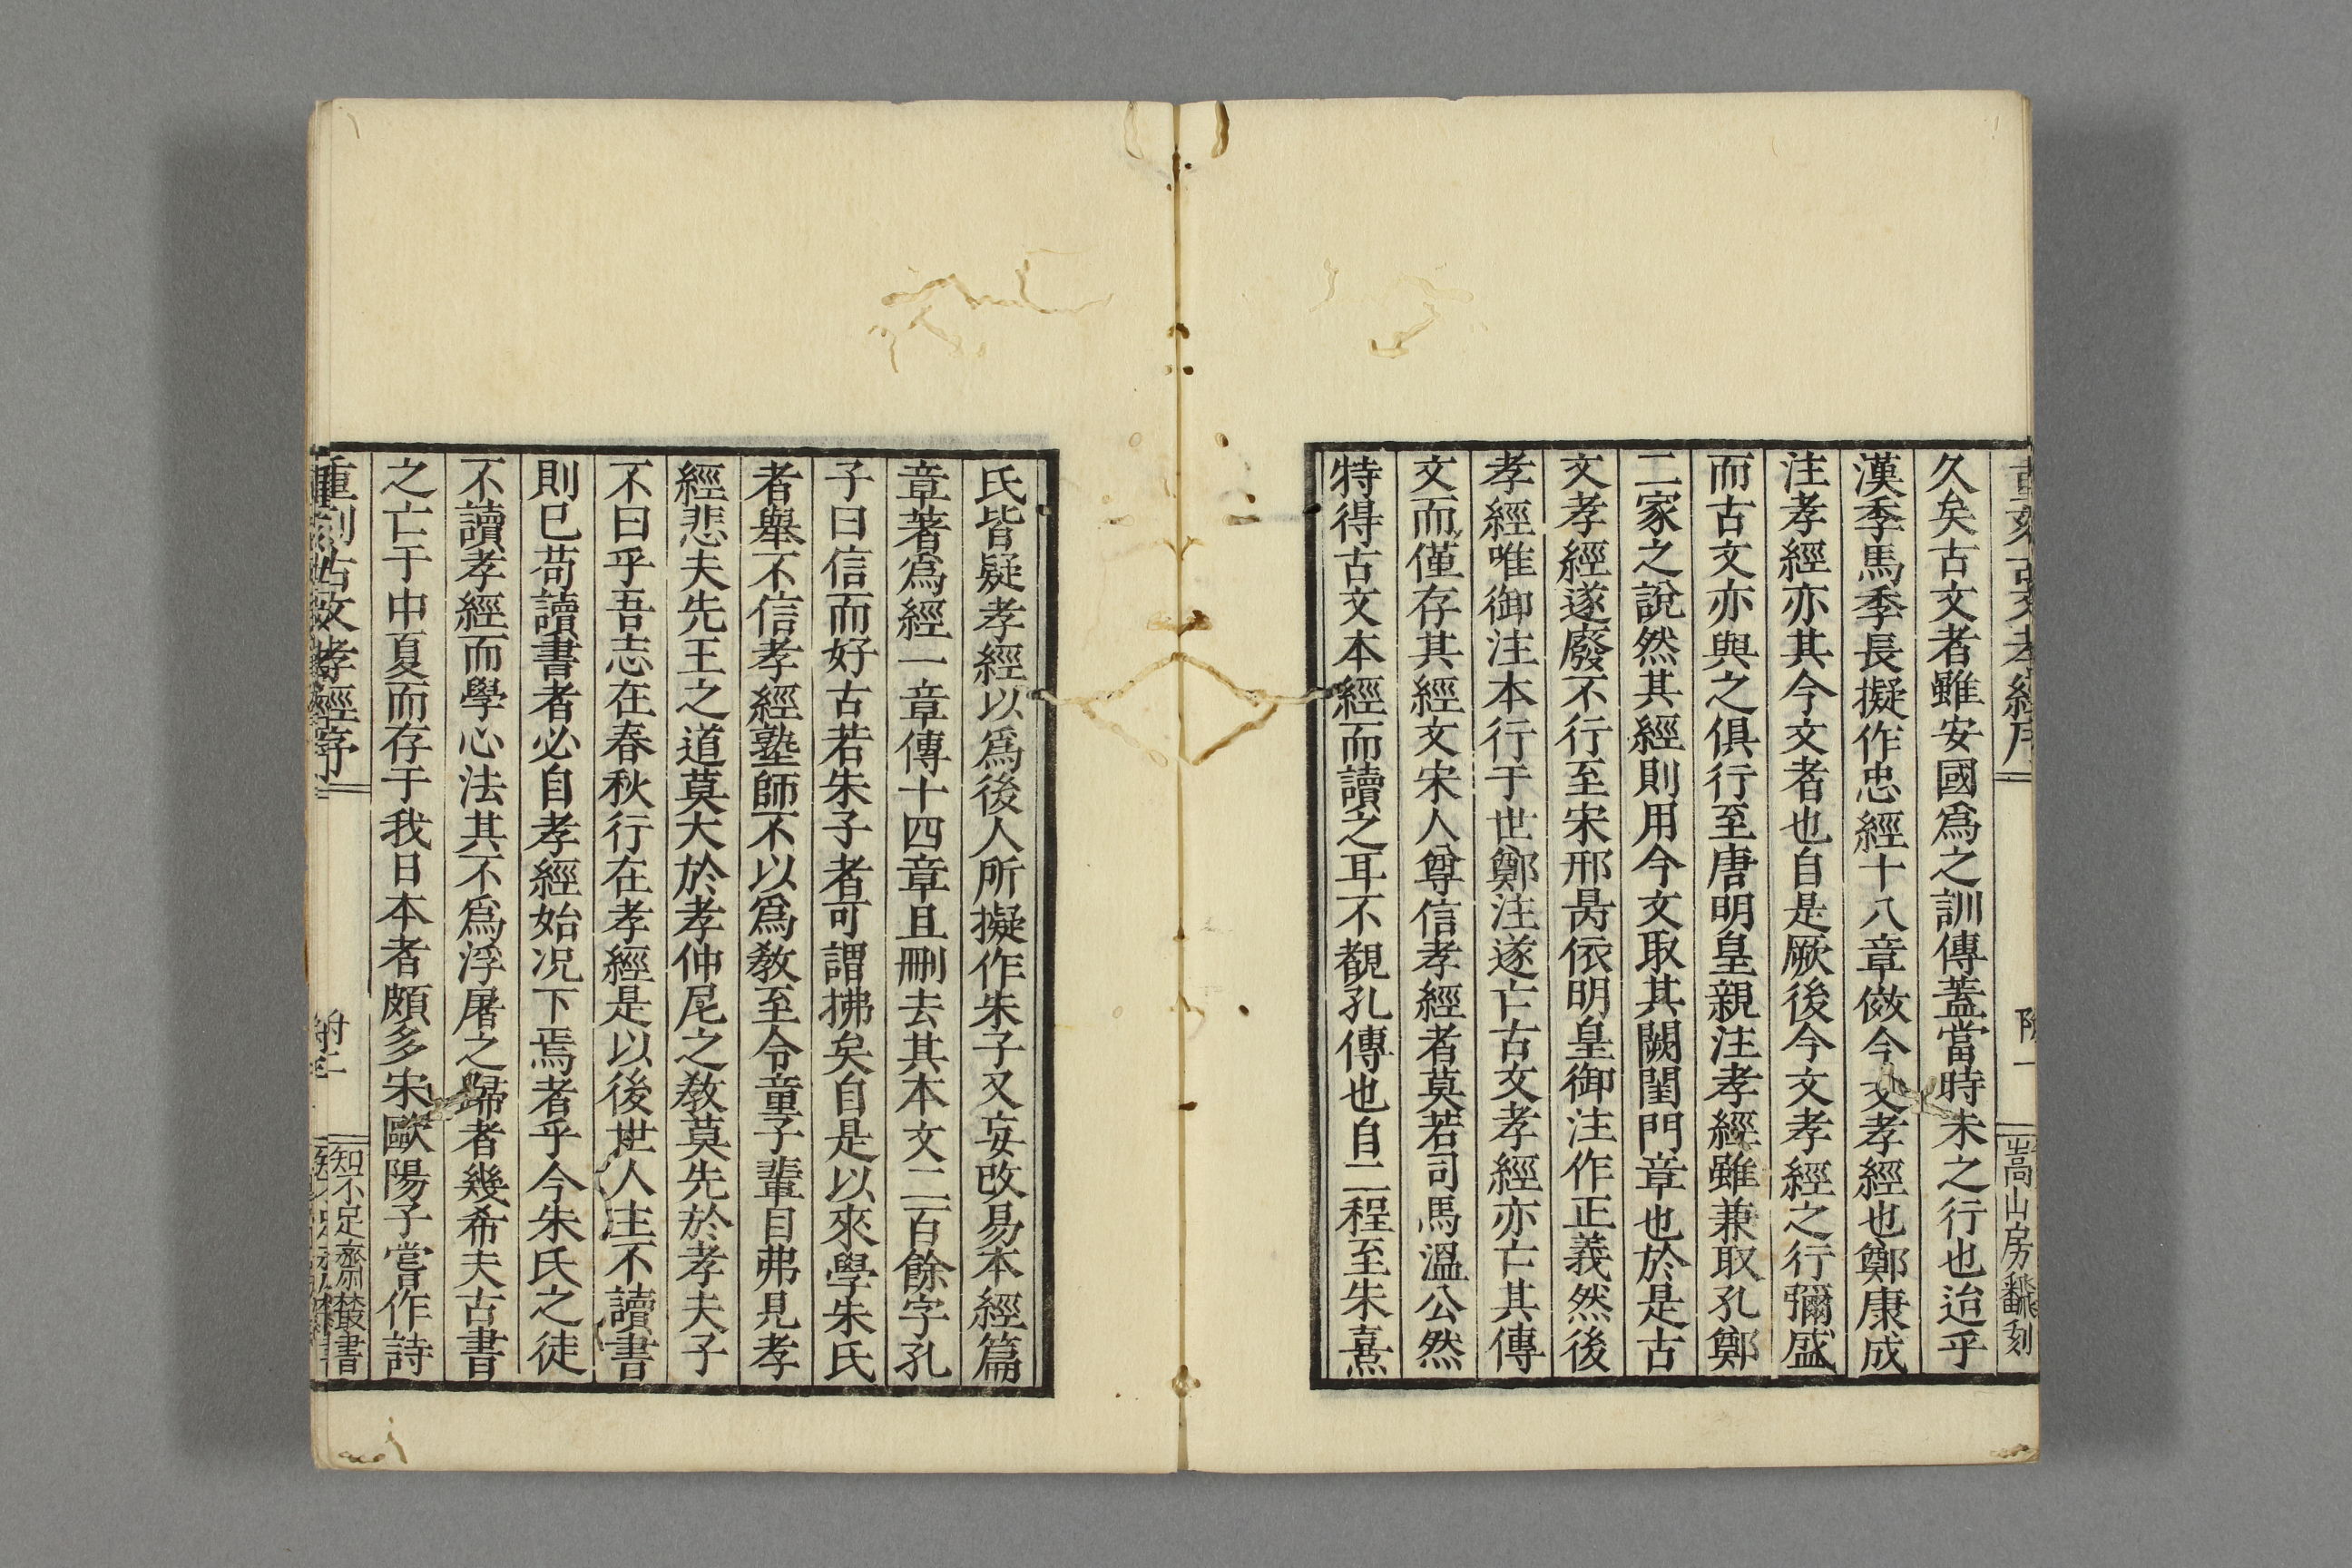 重刻古文孝經序
附一
嵩山房翻刻
久矣古文者雖安國爲之訓傳蓋當時未之行也迨乎
漢季馬季長擬作忠經十八章倣今文孝經也鄭康成
注孝經亦其今文者也自是厥後今文孝經之行彌盛
而古文亦與之俱行至唐明皇親注孝經雖兼取孔鄭
二家之說然其經則用今文取其闕閨門章也於是古
文孝經遂廢不行至宋邢昺依明皇御注作正義然後
孝經唯御注本行于世鄭注遂亡古文孝經亦亡其傳
文而僅存其經文宋人尊信孝經者莫若司馬溫公然
特得古文本經而讀之耳不覩孔傳也自二程至朱熹
氏皆疑孝經以爲後人所擬作朱子又妄改易本經篇
章著爲經一章傳十四章且刪去其本文二百餘字孔
子曰信而好古若朱子者可謂拂矣自是以來學朱氏
者舉不信孝經塾師不以爲教至令童子輩目弗見孝
經悲夫先王之道莫大於孝仲尼之教莫先於孝夫子
不曰乎吾志在春秋行在孝經是以後世人主不讀書
則已苟讀書者必自孝經始況下焉者乎今朱氏之徒
不讀孝經而學心法其不爲浮屠之歸者幾希夫古書
之亡于中夏而存于我日本者頗多宋歐陽子嘗作詩
重刻古文孝經序
附二
知不足齋叢書